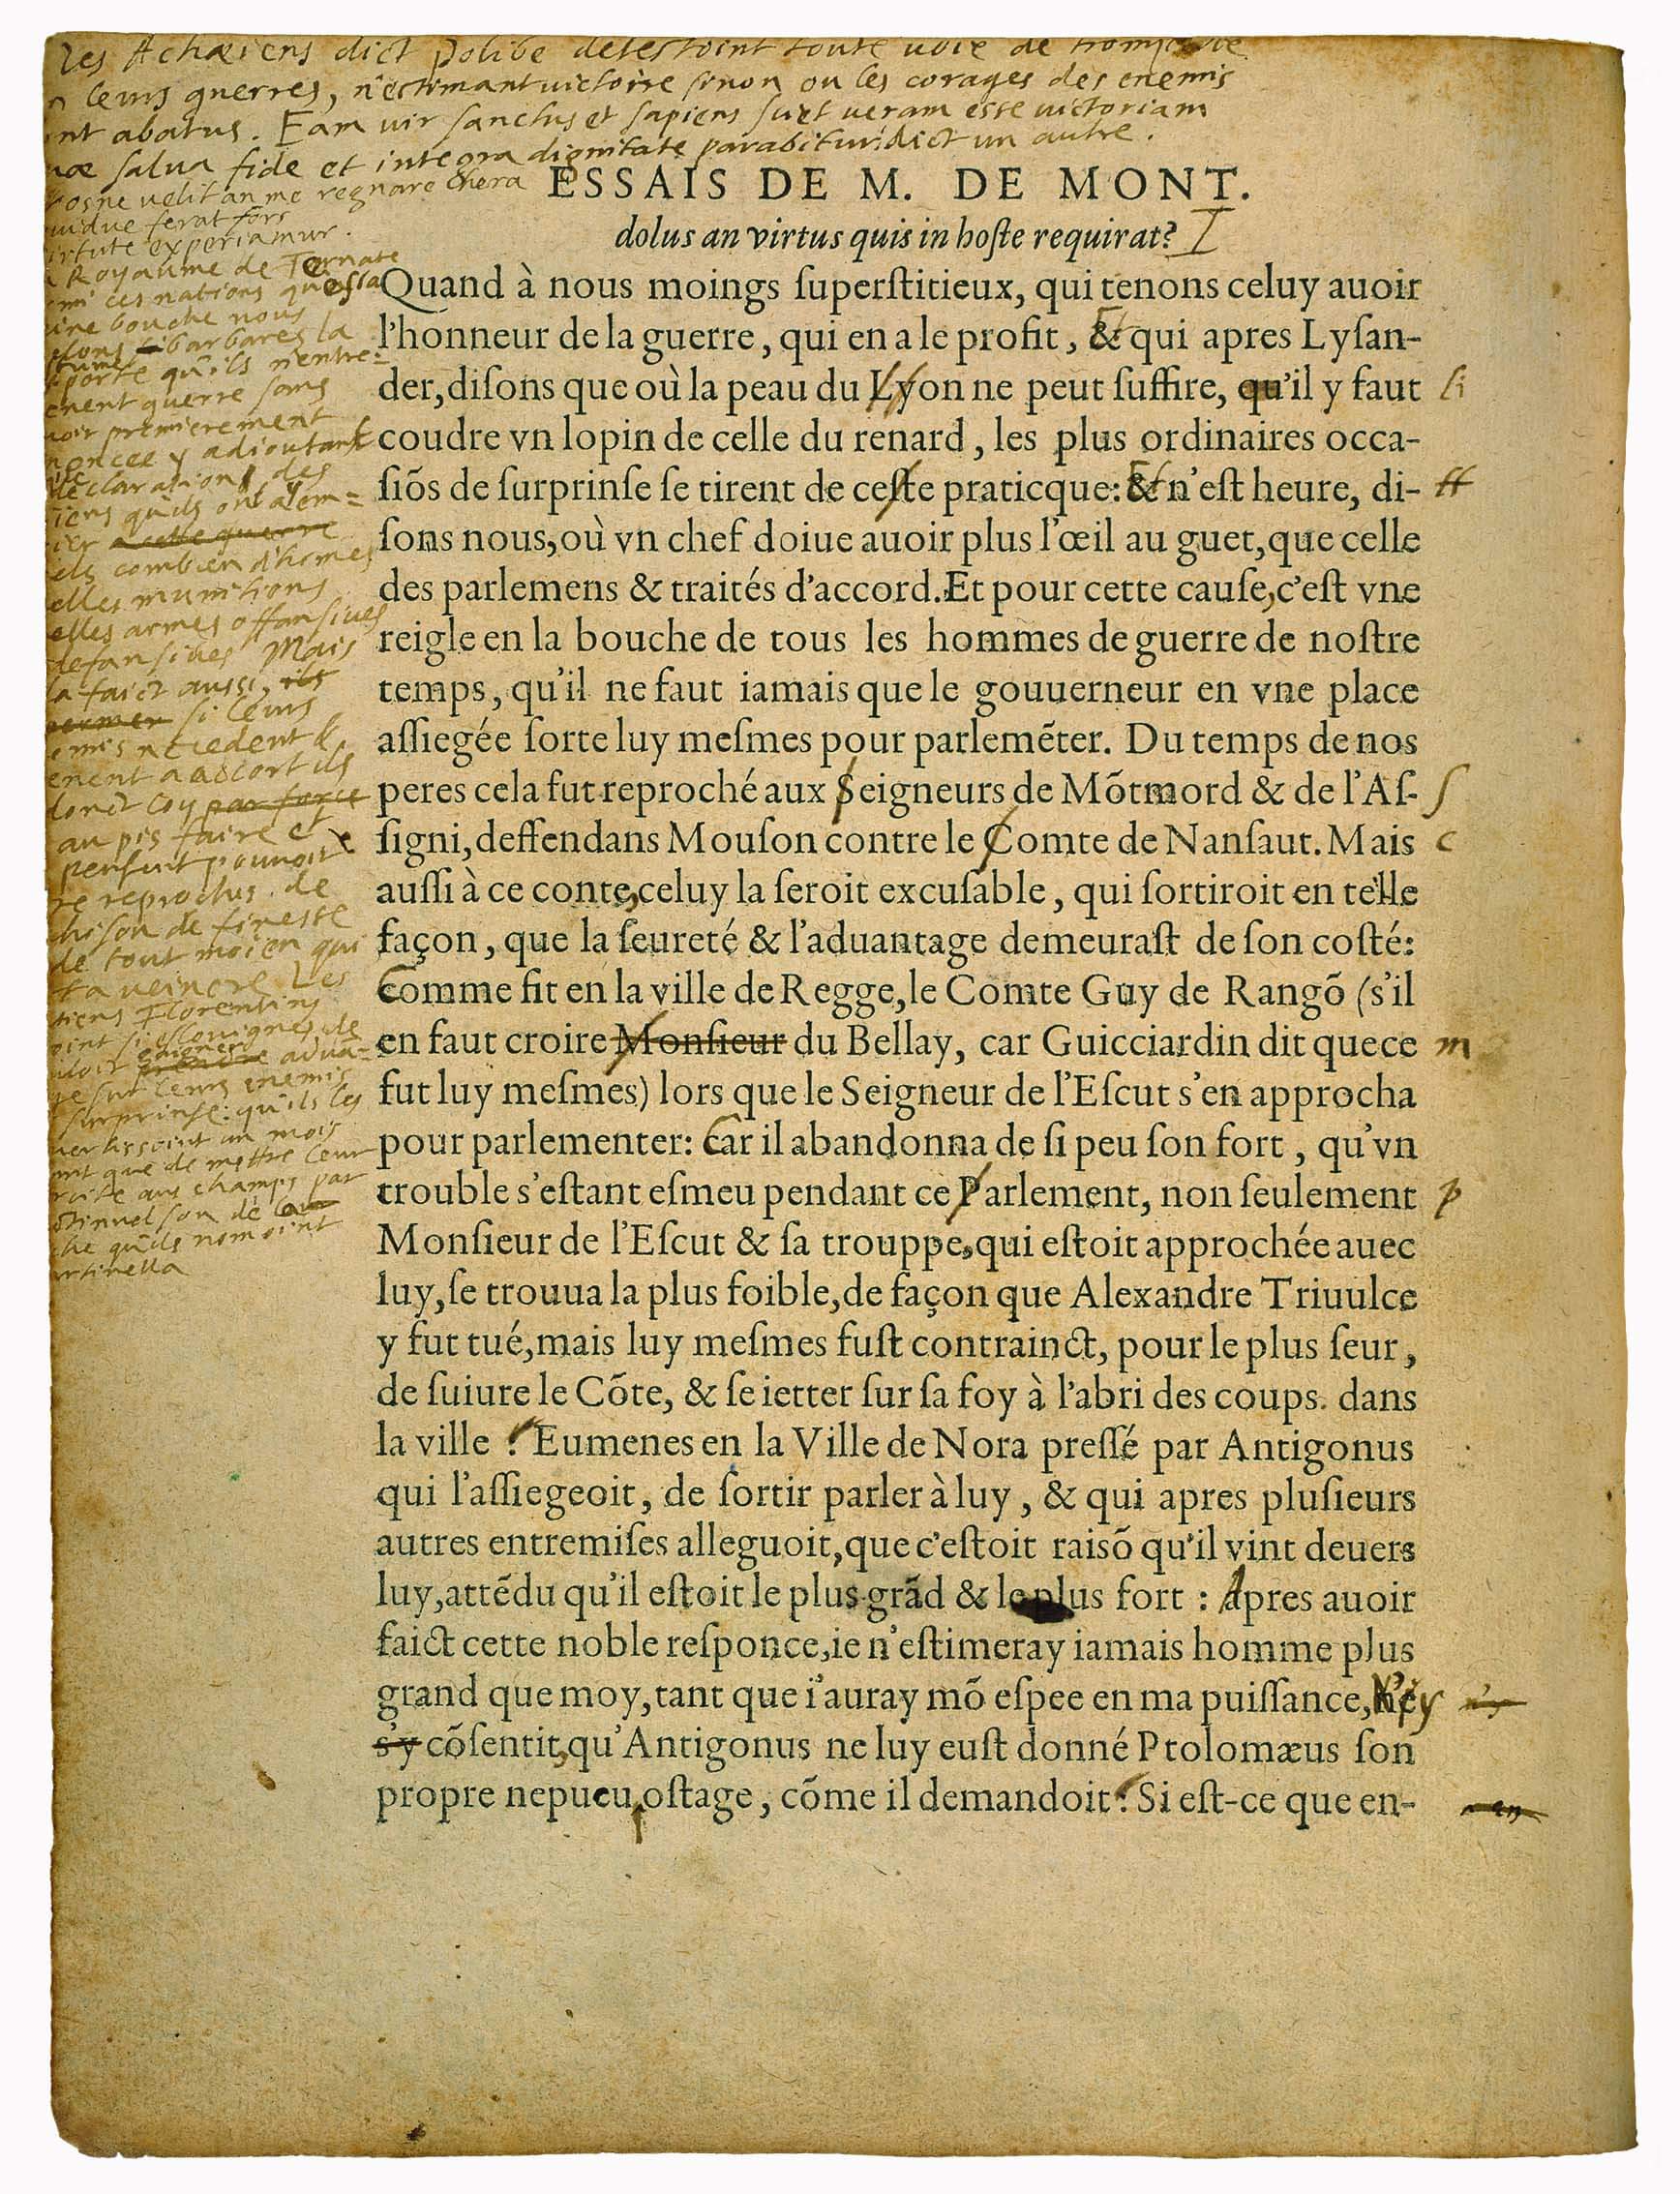 Les Achæiens dict Polibe detestoint toute voie de tromperie
leurs guerres, n'estimant victoire sinon ou les corages des enemis
abatus. Eam vir sanctus et sapiens sciet veram esse victoriam
salva fide et integra dignitate parabitur. dict un autre.
velit an me regnare hera
ferat fors
experiamur.
Royaume de Ternate
ces nations que
bouche nous
barbares la
porte qu'ils n'entre=
guerre sans
premierement
y adioutant
declaration des
qu'ils ont a em=
a cette guerre
combien d'homes
munitions
armes offansives
defansives Mais
faict aussi, ils
si leurs
cedent &
a accort ils
coy par force
au pis faire et
pensent pouvoir
reproches de
de finesse
de tout moien qui
veincre Les
Florentins
si esloignes de
gaigner
prendre adva=
sur leurs enemis
surprinse: qu'ils les
un mois
que de mettre leur
aus champs par
son de leur
qu'ils nomoint
ESSAIS DE M. DE MONT.
dolus an virtus quis in hoſte requirat?
Quand à nous moings ſuperſtitieux, qui tenons celuy auoir
l'honneur de la guerre, qui en a le profit, & qui apres Lyſan-
der, diſons que où la peau du Lyon ne peut ſuffire, qu'il y faut li
coudre vn lopin de celle du renard, les plus ordinaires occa-
ſiõs de ſurprinſe ſe tirent de ceſte praticque: & n'eſt heure, di- tt
ſons nous, où vn chef doiue auoir plus l'œil au guet, que celle
des parlemens & traités d'accord. Et pour cette cauſe, c'eſt vne
reigle en la bouche de tous les hommes de guerre de noſtre
temps, qu'il ne faut iamais que le gouuerneur en vne place
aſſiegée ſorte luy meſmes pour parlemẽter. Du temps de nos
peres cela fut reproché aux Seigneurs de Mõtmord & de l'Aſ- ſ
ſigni, deffendans Mouſon contre le Comte de Nanſaut. Mais c
auſſi à ce conte, celuy la ſeroit excuſable, qui ſortiroit en telle
façon, que la ſeureté & l'aduantage demeuraſt de ſon coſté:
Comme fit en la ville de Regge, le Comte Guy de Rangõ (s'il
en faut croire Monſieur du Bellay, car Guicciardin dit que ce m
fut luy meſmes) lors que le Seigneur de l'Eſcut s'en approcha
pour parlementer: Car il abandonna de ſi peu ſon fort, qu'vn
trouble s'eſtant eſmeu pendant ce Parlement, non ſeulement p
Monſieur de l'Eſcut & ſa trouppe, qui eſtoit approchée auec
luy, ſe trouua la plus foible, de façon que Alexandre Triuulce
y fut tué, mais luy meſmes fuſt contrainct, pour le plus ſeur,
de ſuiure le Cõte, & ſe ietter ſur ſa foy à l'abri des coups. dans
la ville. Eumenes en la Ville de Nora preſſé par Antigonus
qui l'aſſiegeoit, de ſortir parler à luy, & qui apres pluſieurs
autres entremiſes alleguoit, que c'eſtoit raisõ qu'il vint deuers
luy, attẽdu qu'il eſtoit le plus grãd & le plus fort: Apres auoir
faict cette noble reſponce, ie n'eſtimeray iamais homme plus
grand que moy, tant que i'auray mõ eſpee en ma puiſſance, n'y
s'y cõſentit, qu'Antigonus ne luy euſt donné Ptolomæus ſon
propre nepueu oſtage, cõme il demandoit. Si eſt-ce que en- en